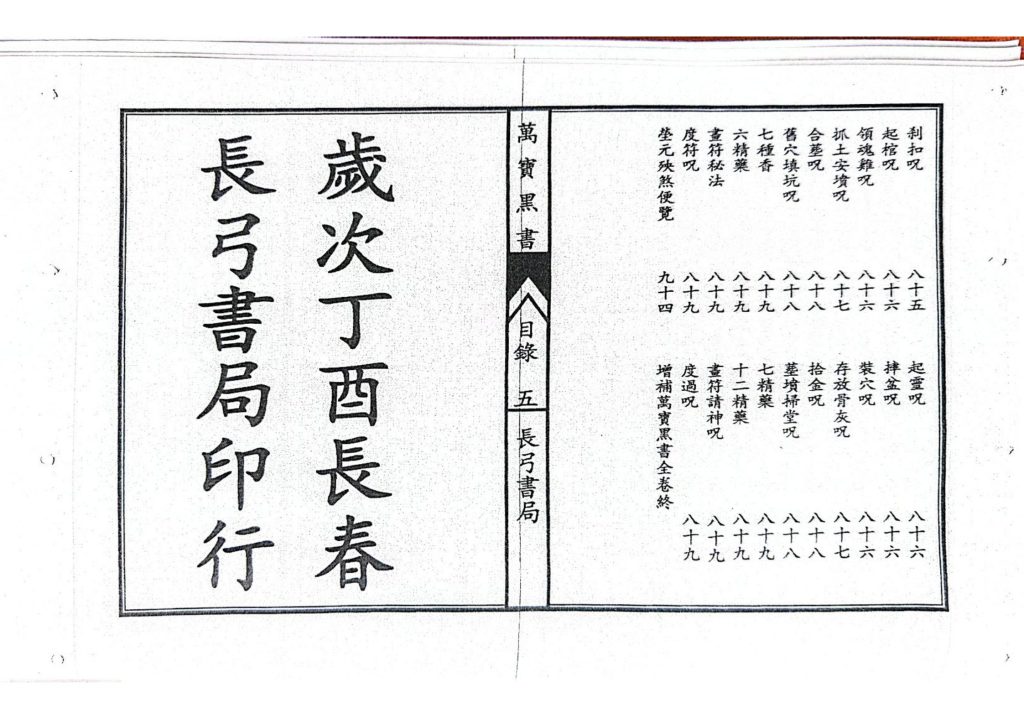 剎扣呪 八十五 起靈呪 八十六
起棺呪 八十六 摔盆呪 八十六
領魂雞呪 八十六 裝穴呪 八十六
抓土安墳呪 八十七 存放骨灰呪 八十七
合墓呪 八十八 拾金呪 八十八
舊穴填坑呪 八十八 墓墳掃堂呪 八十八
七種香 八十九 七精藥 八十九
六精藥 八十九 十二精藥 八十九
畫符秘法 八十九 畫符請神呪 八十九
度符呪 八十九 度過呪 八十九
塋元殃煞便覽 九十四 增補萬寶黑書全卷終
萬寶黑書 目錄 五 長弓書局
歲次丁酉長春
長弓書局印行